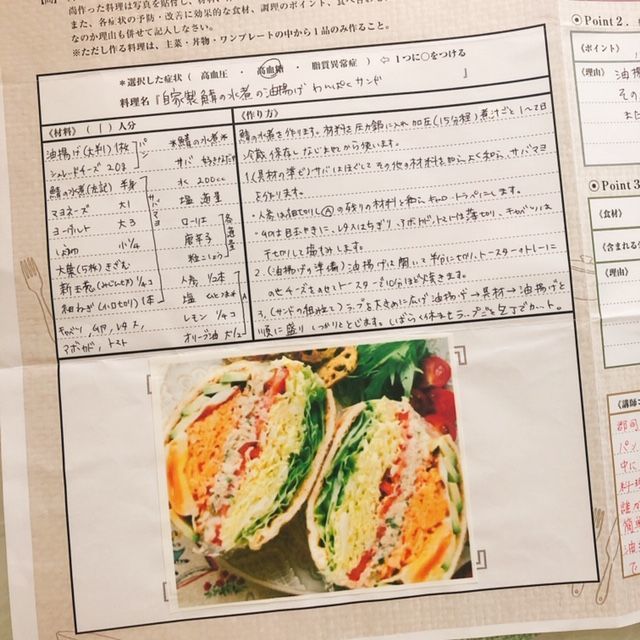 また、各症状の予防・改善に効果的な食材、調理のポイント、食べ合わ
なのか理由も併せて記入しなさい。
※ただし作る料理は、主菜・丼物・ワンプレートの中から1品のみ作ること。
*選択した症状（ 高血圧 ・ 高血糖 ・ 脂質異常症 ）⇦ 1つに○をつける
料理名『自家製鯖の水煮の油揚げ わんぱくサンド 』
《材料》（ 1 ）人分
油揚げ（大判）1枚
シュレッドチーズ 20g
パン
鯖の水煮（左記）半身
マヨネーズ 大1
ヨーグルト 大3
しょうゆ 小1/4
大葉（5枚）きざむ
新玉ねぎ（みじん切り）1/4コ
細ねぎ（小口切り）1本
サバマヨ
キャベツ、ゆで卵、レタス、
アボカド、トマト
*鯖の水煮*
サバ
水 200cc
塩 適量
ローリエ
唐辛子
粒こしょう
各適量
人参 1/2本
塩 ひとつまみ
レモン 1/4コ
オリーブ油 大1/2
A
《作り方》
鯖の水煮を作ります。材料を圧力鍋に入れ加圧（15分程）煮汁ごと1〜2日
冷蔵保存しなじませてから使います。
1.（具材の準備）サバはほぐしてその他の材料を加えよく和え、サバマヨ
を作ります。
・人参は細切りし Ⓐの残りの材料と和えキャロットラペにします。
千切りして塩もみします。
2.（油揚げの準備）油揚げは開いて半分に切り、トースタートレーに
のせチーズをのせトースターで10分ほど焼きます。
3.（サンドの組立て）ラップを大きめに広げ油揚げ→具材→油揚げと
順に盛りしっかりととじます。しばらく休ませラップごと包丁でカット。
Point2.
（ポイント）
（理由）
Point3
《食材》
《含まれる
（理由）
《講師
郡司
パン
中に
料理
誰が
簡単
油
で